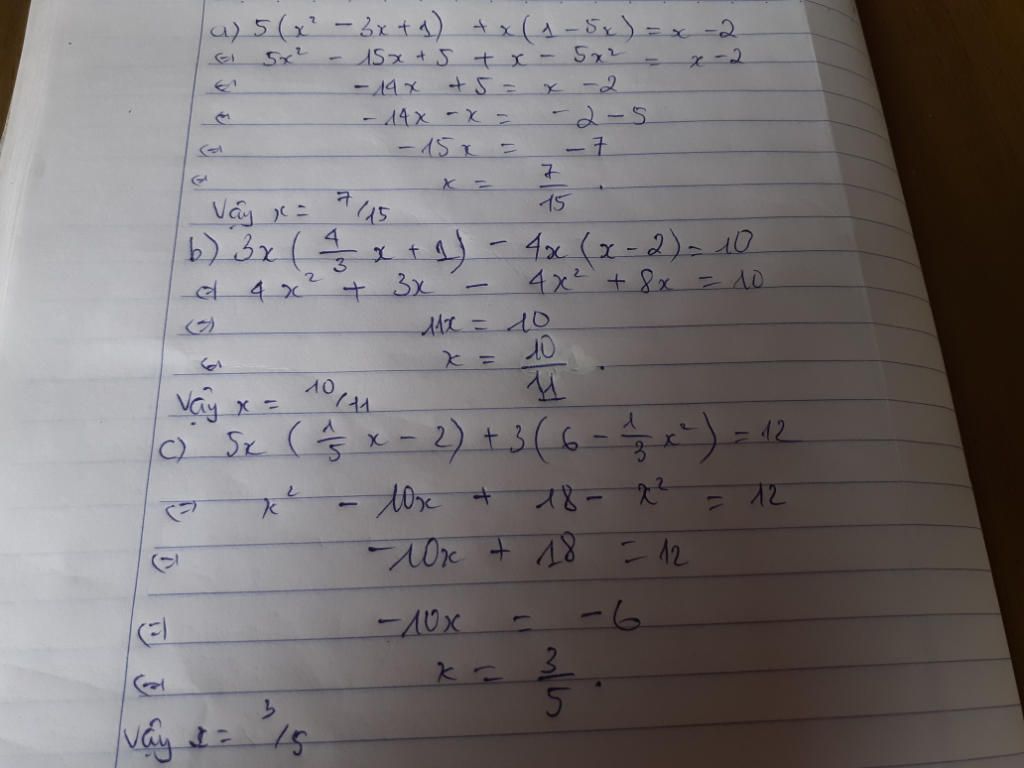 a) 5(x² - 3x + 1) + x(1 - 5x) = x - 2
⇔ 5x² - 15x + 5 + x - 5x² = x - 2
⇔ -14x + 5 = x - 2
⇔ -14x - x = -2 - 5
⇔ -15x = -7
⇔ x = 7/15 .
Vậy x = 7/15
b) 3x(4/3 x + 1) - 4x(x - 2) = 10
⇔ 4x² + 3x - 4x² + 8x = 10
⇔ 11x = 10
⇔ x = 10/11 .
Vậy x = 10/11
c) 5x(1/5 x - 2) + 3(6 - 1/3 x²) = 12
⇔ x² - 10x + 18 - x² = 12
⇔ -10x + 18 = 12
⇔ -10x = -6
⇔ x = 3/5 .
Vậy x = 3/5